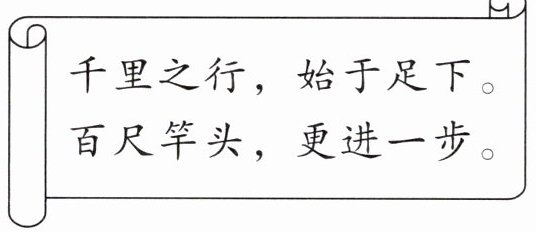 千里之行，始于足下。
百尺竿头，更进一步。